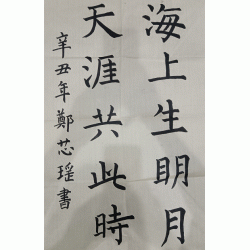 海上生明月
天涯共此時
辛丑年鄭芯瑶書